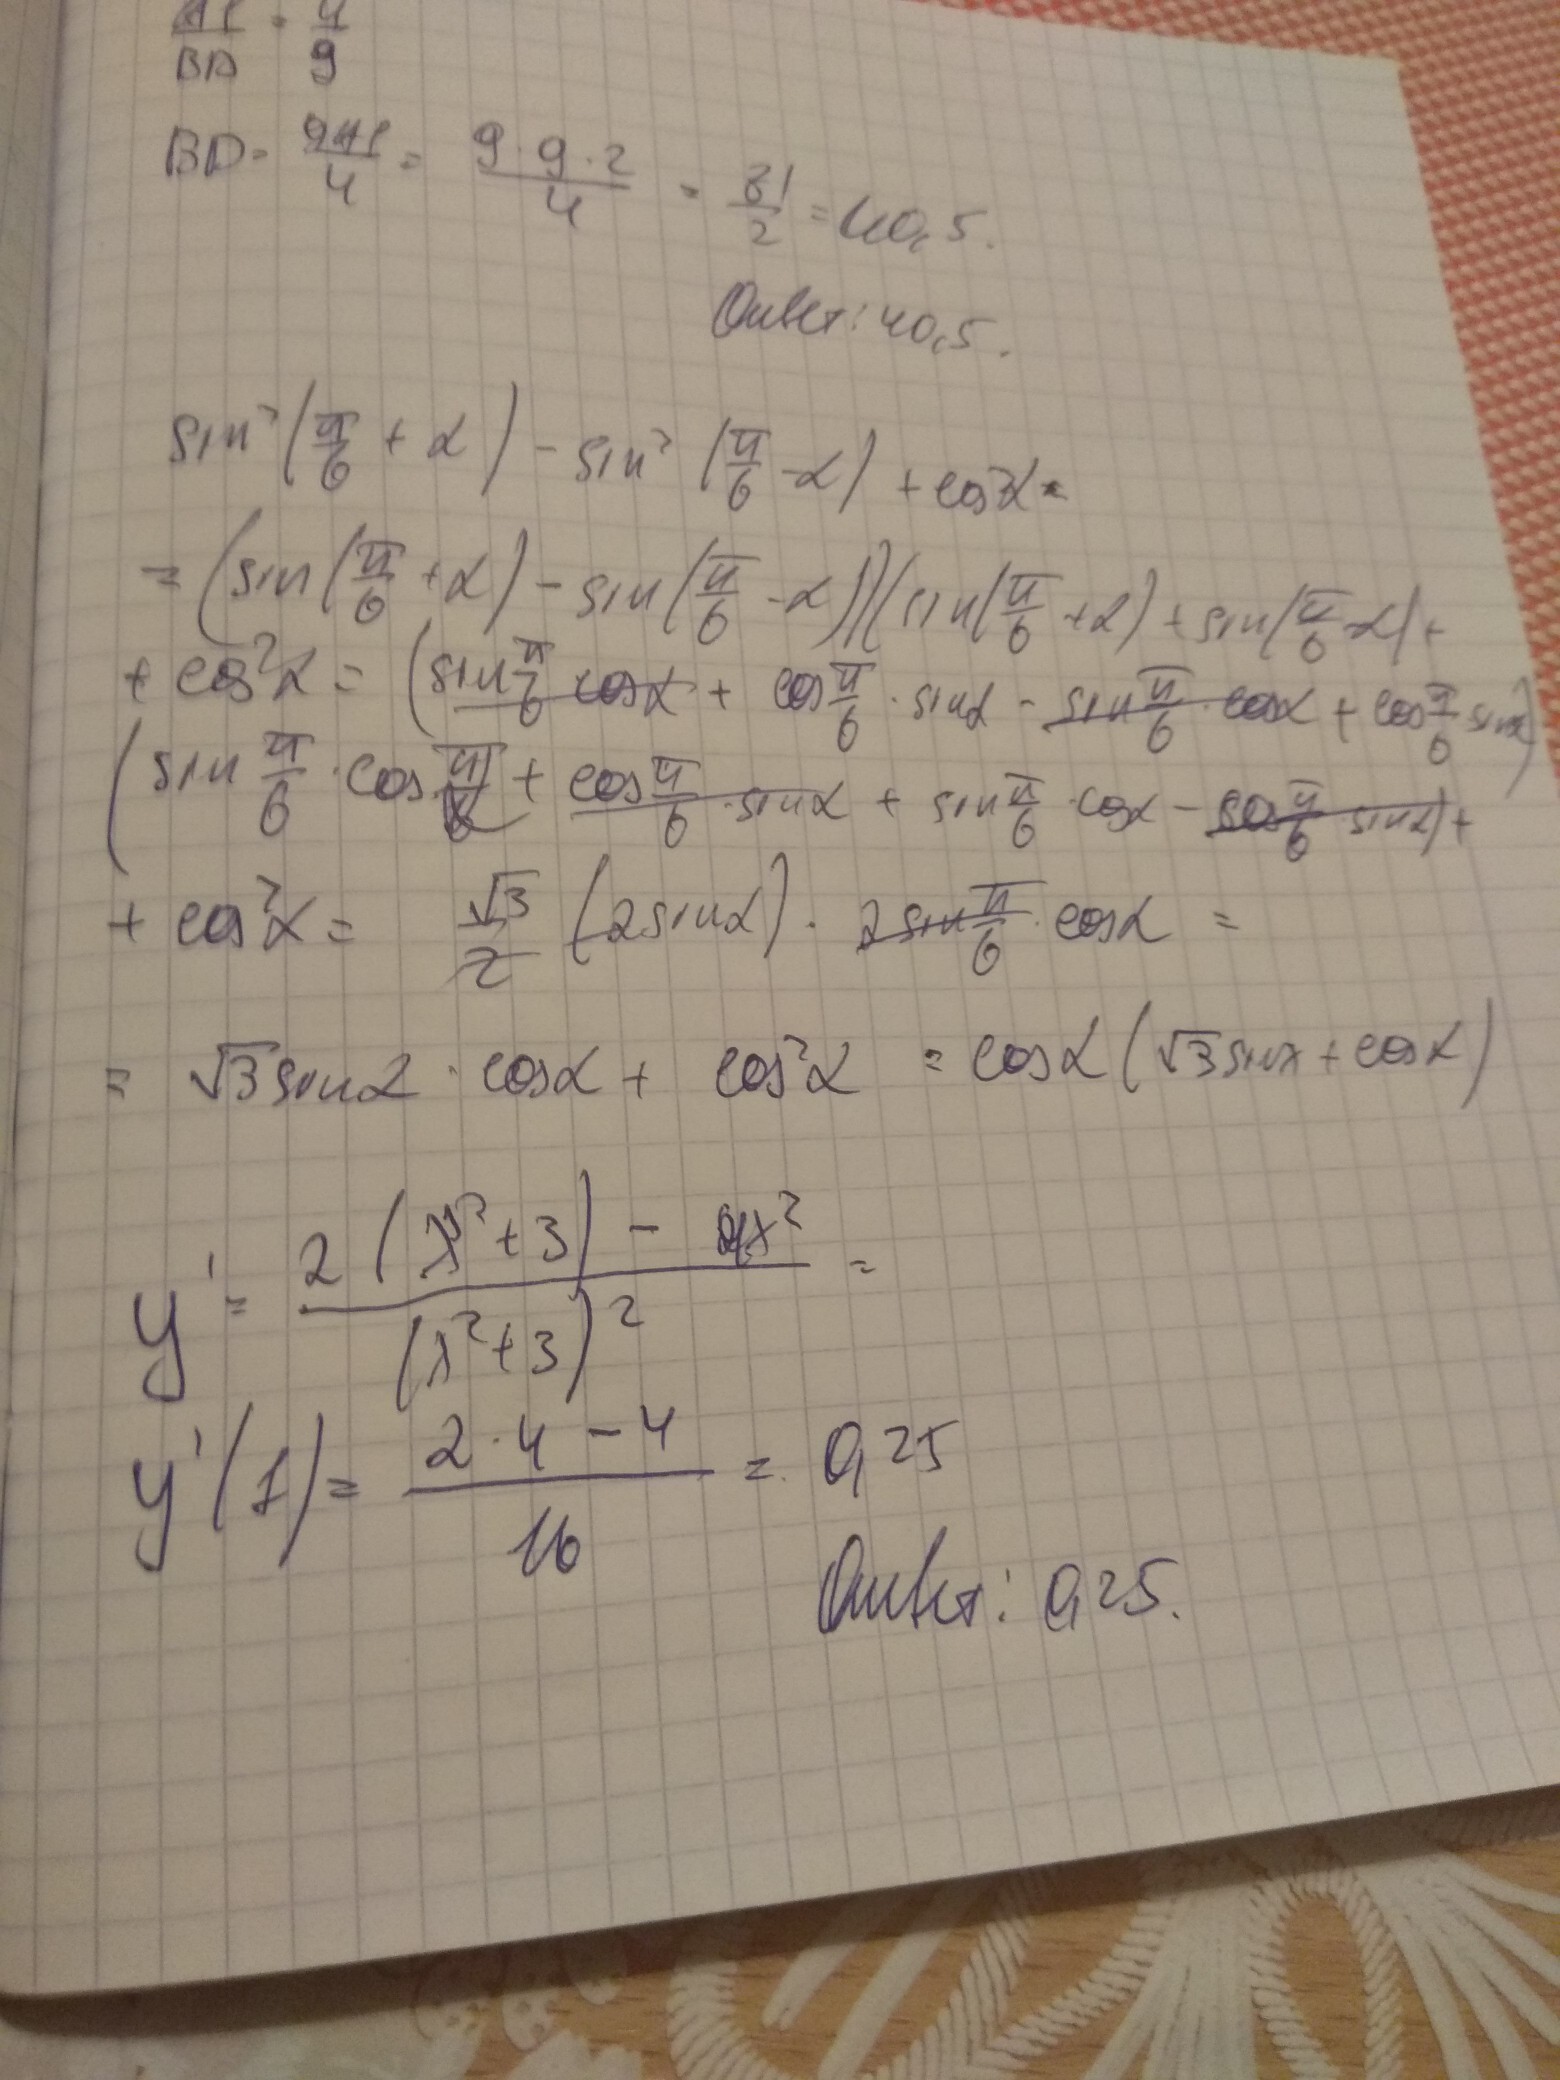 BD 9
BD = 9AP/4 = 9·9·2/4 = 81/2 = 40,5.
Ответ: 40,5.
sin²(π/6 + α) - sin²(π/6 - α) + cos²α =
= (sin(π/6 + α) - sin(π/6 - α))(sin(π/6 + α) + sin(π/6 - α) +
+ cos²α = (sin π/6 cosα + cos π/6 · sinα - sin π/6 · cosα + cos π/6 sinα)
(sin π/6 · cos + cos π/6 · sinα + sin π/6 · cosα - cos π/6 sinα) +
+ cos²α = √3/2 (2sinα) · 2sin π/6 · cosα =
= √3 sinα · cosα + cos²α = cosα (√3 sinα + cosα)
y' = (2(x²+3) - 4x²)/(x²+3)² =
y'(1) = (2·4 - 4)/16 = 0,25
Ответ: 0,25.